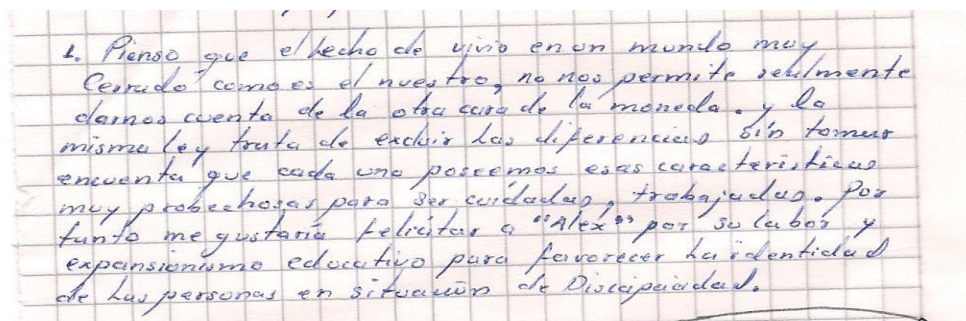 1. Pienso que el hecho de vivir en un mundo muy
Cerrado como es el nuestro, no nos permite realmente
darnos cuenta de la otra cara de la moneda. y la
misma ley trata de excluir las diferencias sin tomar
encuenta que cada uno poseemos esas caracteristicas
muy probechosas para ser cuidadas, trabajadas. Por
tanto me gustaría felicitar a "Alex" por su labor y
expansionismo educativo para favorecer la identidad
de las personas en situación de Discapacidad.